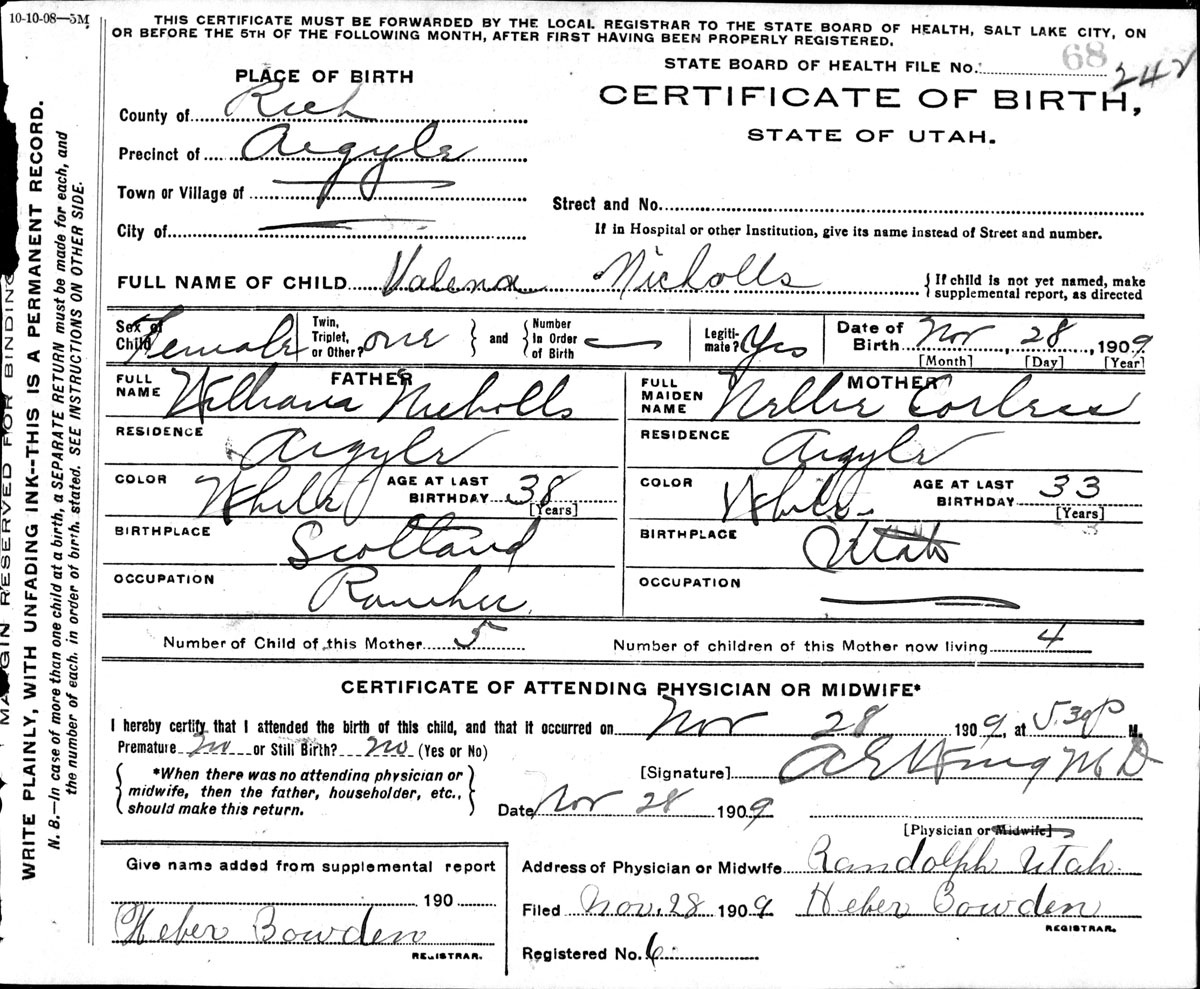 10-10-08—5M
THIS CERTIFICATE MUST BE FORWARDED BY THE LOCAL REGISTRAR TO THE STATE BOARD OF HEALTH, SALT LAKE CITY, ON
OR BEFORE THE 5TH OF THE FOLLOWING MONTH, AFTER FIRST HAVING BEEN PROPERLY REGISTERED.
STATE BOARD OF HEALTH FILE No. 68 242
PLACE OF BIRTH
CERTIFICATE OF BIRTH,
STATE OF UTAH.
County of Rich
Precinct of Argyle
Town or Village of
City of
Street and No.
If in Hospital or other Institution, give its name instead of Street and number.
FULL NAME OF CHILD Valena Nicholls { If child is not yet named, make
supplemental report, as directed
Sex of Child Female Twin, Triplet, or Other? one } and { Number In Order of Birth — Legiti-mate? Yes Date of Birth Nov 28, 1909
[Month] [Day] [Year]
FATHER
FULL NAME William Nicholls
RESIDENCE Argyle
COLOR White AGE AT LAST BIRTHDAY 38 [Years]
BIRTHPLACE Scotland
OCCUPATION Rancher
MOTHER
FULL MAIDEN NAME Nellie Corless
RESIDENCE Argyle
COLOR White AGE AT LAST BIRTHDAY 33 [Years]
BIRTHPLACE Utah
OCCUPATION —
Number of Child of this Mother 5 Number of children of this Mother now living 4
CERTIFICATE OF ATTENDING PHYSICIAN OR MIDWIFE*
I hereby certify that I attended the birth of this child, and that it occurred on Nov 28 1909, at 5.30 P M.
Premature no or Still Birth? no (Yes or No)
{ *When there was no attending physician or
midwife, then the father, householder, etc.,
should make this return. }
[Signature] M D
Date Nov 28 1909
[Physician or Midwife]
Give name added from supplemental report
190
Heber Bowden
REGISTRAR.
Address of Physician or Midwife Randolph Utah
Filed Nov. 28 1909 Heber Bowden
REGISTRAR.
Registered No. 6
MARGIN RESERVED FOR BINDING
WRITE PLAINLY, WITH UNFADING INK--THIS IS A PERMANENT RECORD.
N. B.—In case of more than one child at a birth, a SEPARATE RETURN must be made for each, and
the number of each, in order of birth, stated. SEE INSTRUCTIONS ON OTHER SIDE.